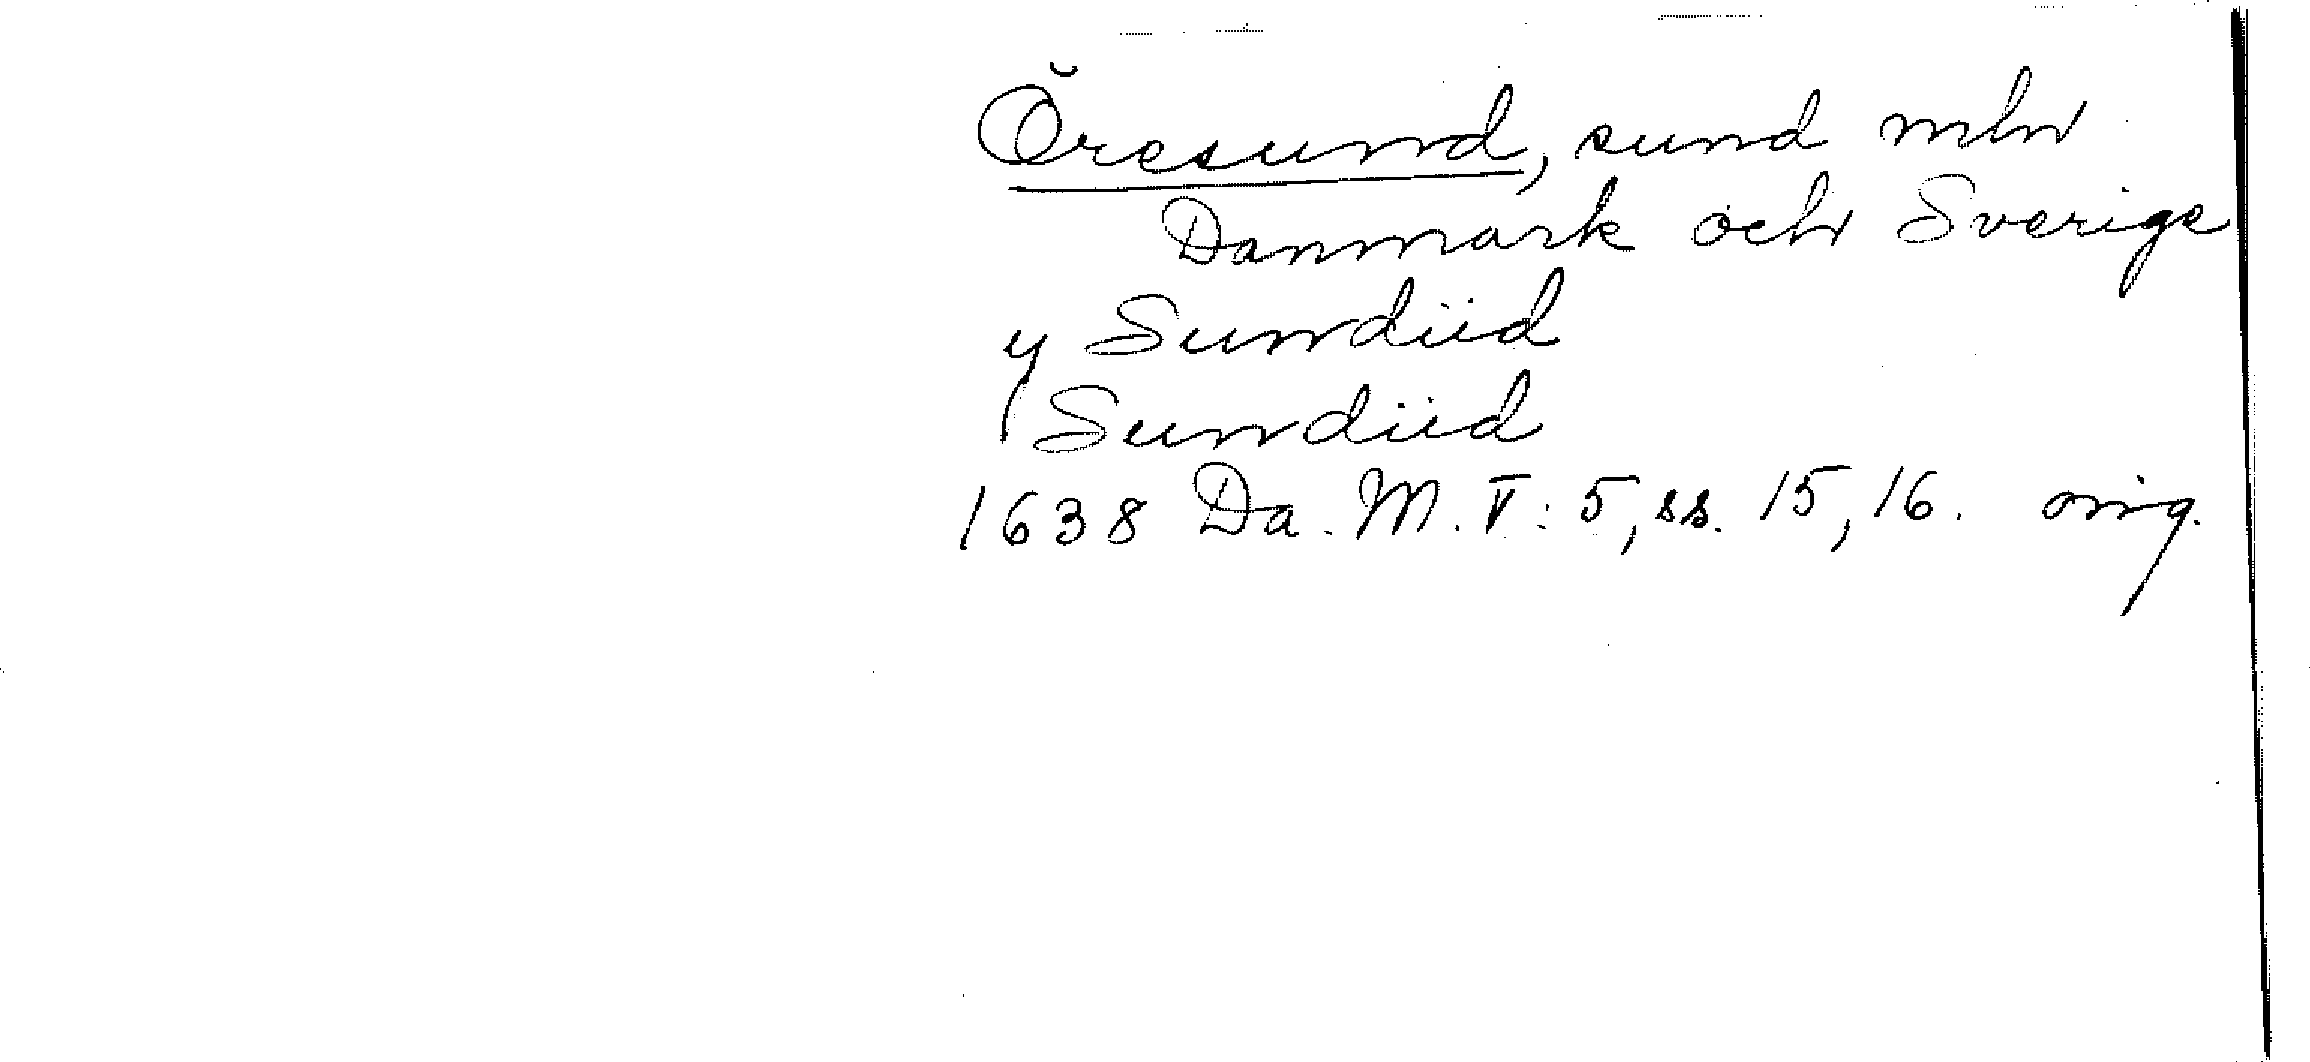 Öresund, sund mln
Danmark och Sverige
y Sundüd
Sundüd
1638 Da. M. V: 5, ss. 15, 16. orig.